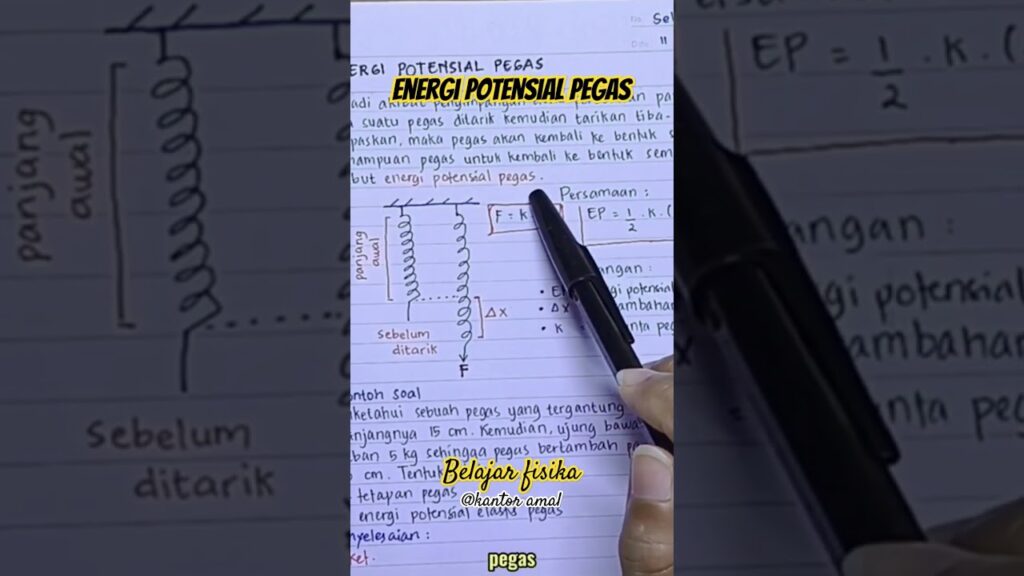 Sel
11
ERGI POTENSIAL PEGAS
ENERGI POTENSIAL PEGAS
suatu pegas ditarik kemudian tarikan tiba-
paskan, maka pegas akan kembali ke bentuk s
ampuan pegas untuk kembali ke bentuk sem
but energi potensial pegas.
Persamaan :
F = K
EP = 1/2 . K . (
panjang awal
angan :
• E gi potensial
• Δx ambahan
• K nta pe
Δx
sebelum
ditarik
F
ntoh soal
ketahui sebuah pegas yang tergantung
njangnya 15 cm. Kemudian, ujung bawa
ban 5 kg sehingga pegas bertambah pa
cm. Tentuk
Belajar fisika
tetapan pegas
@kantor amal
energi potensial elastis pegas
nyelesaian :
ket.
pegas
panjang
awal
sebelum
ditarik
EP = 1/2 . K . (
angan :
gi potensial
ambahan
nta peg